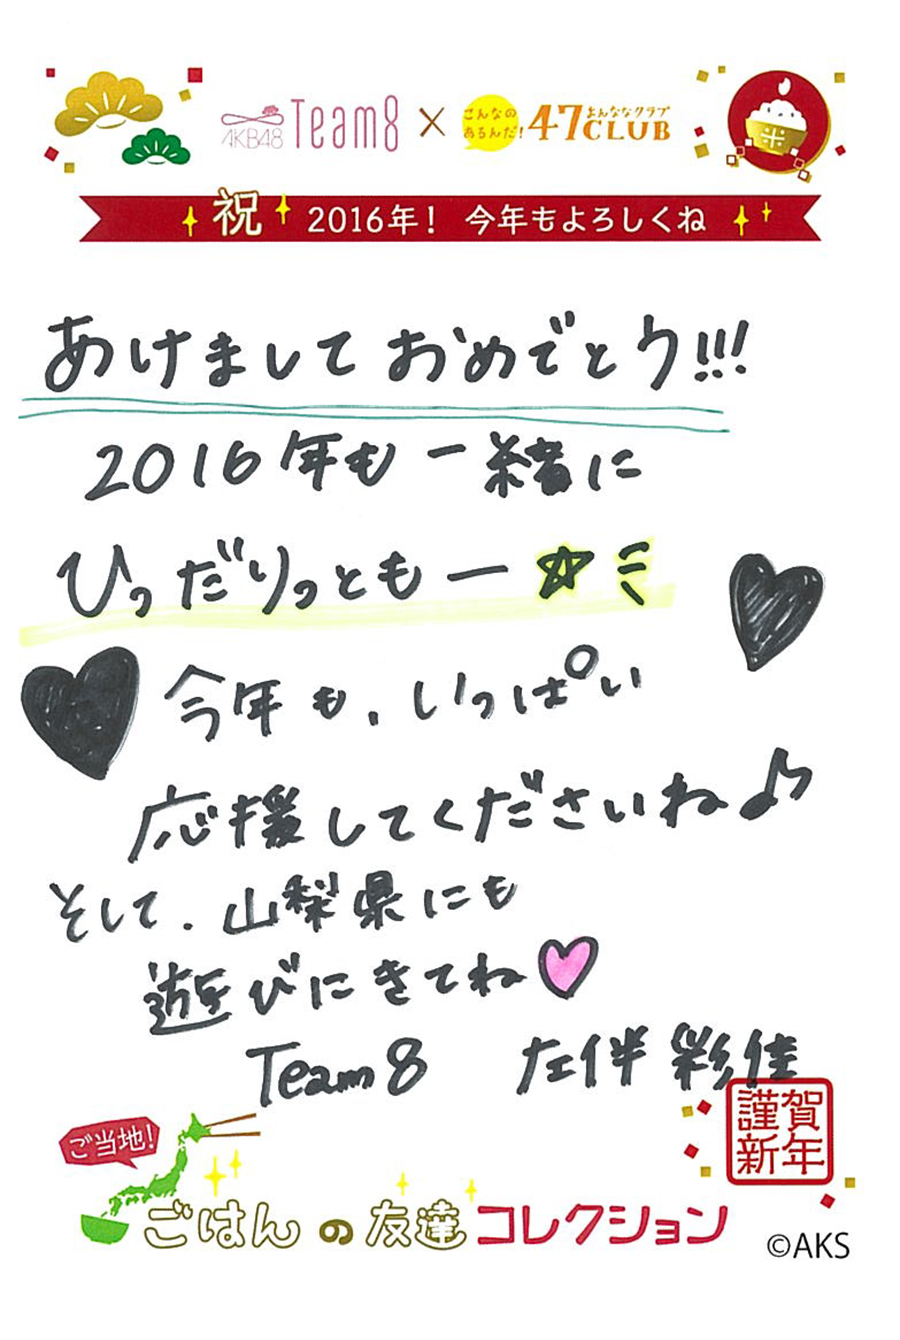 AKB48 Team8 × こんなのあるんだ! 47CLUB よんななクラブ
米
祝 2016年！ 今年もよろしくね
あけましておめでとう!!!
2016年も一緒に
ひっだりっともー☆ミ
今年も、いっぱい
応援してくださいね♪
そして、山梨県にも
遊びにきてね♡
Team8 左伴彩佳
謹賀
新年
ご当地!
ごはんの友達コレクション
©AKS